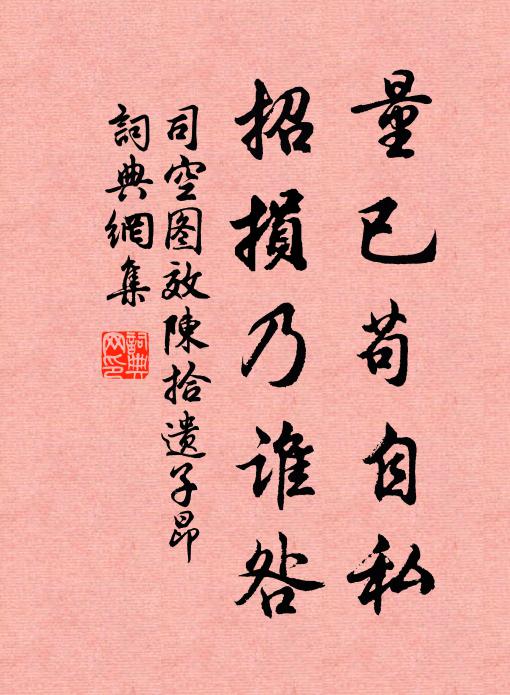 量已苟自私
招損乃誰咎
司空图效陳拾遺子昂
詞典網集
詞典网印